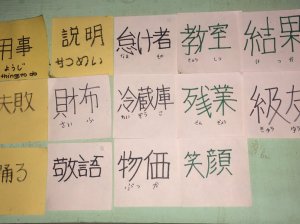 用事
ようじ
thing to do
説明
せつめい
怠け者
なま もの
教室
きょうしつ
結果
けっか
失敗
財布
さいふ
冷蔵庫
れいぞうこ
残業
ざんぎょう
級友
きゅうゆう
踊る
敬語
物価
ぶっか
笑顔